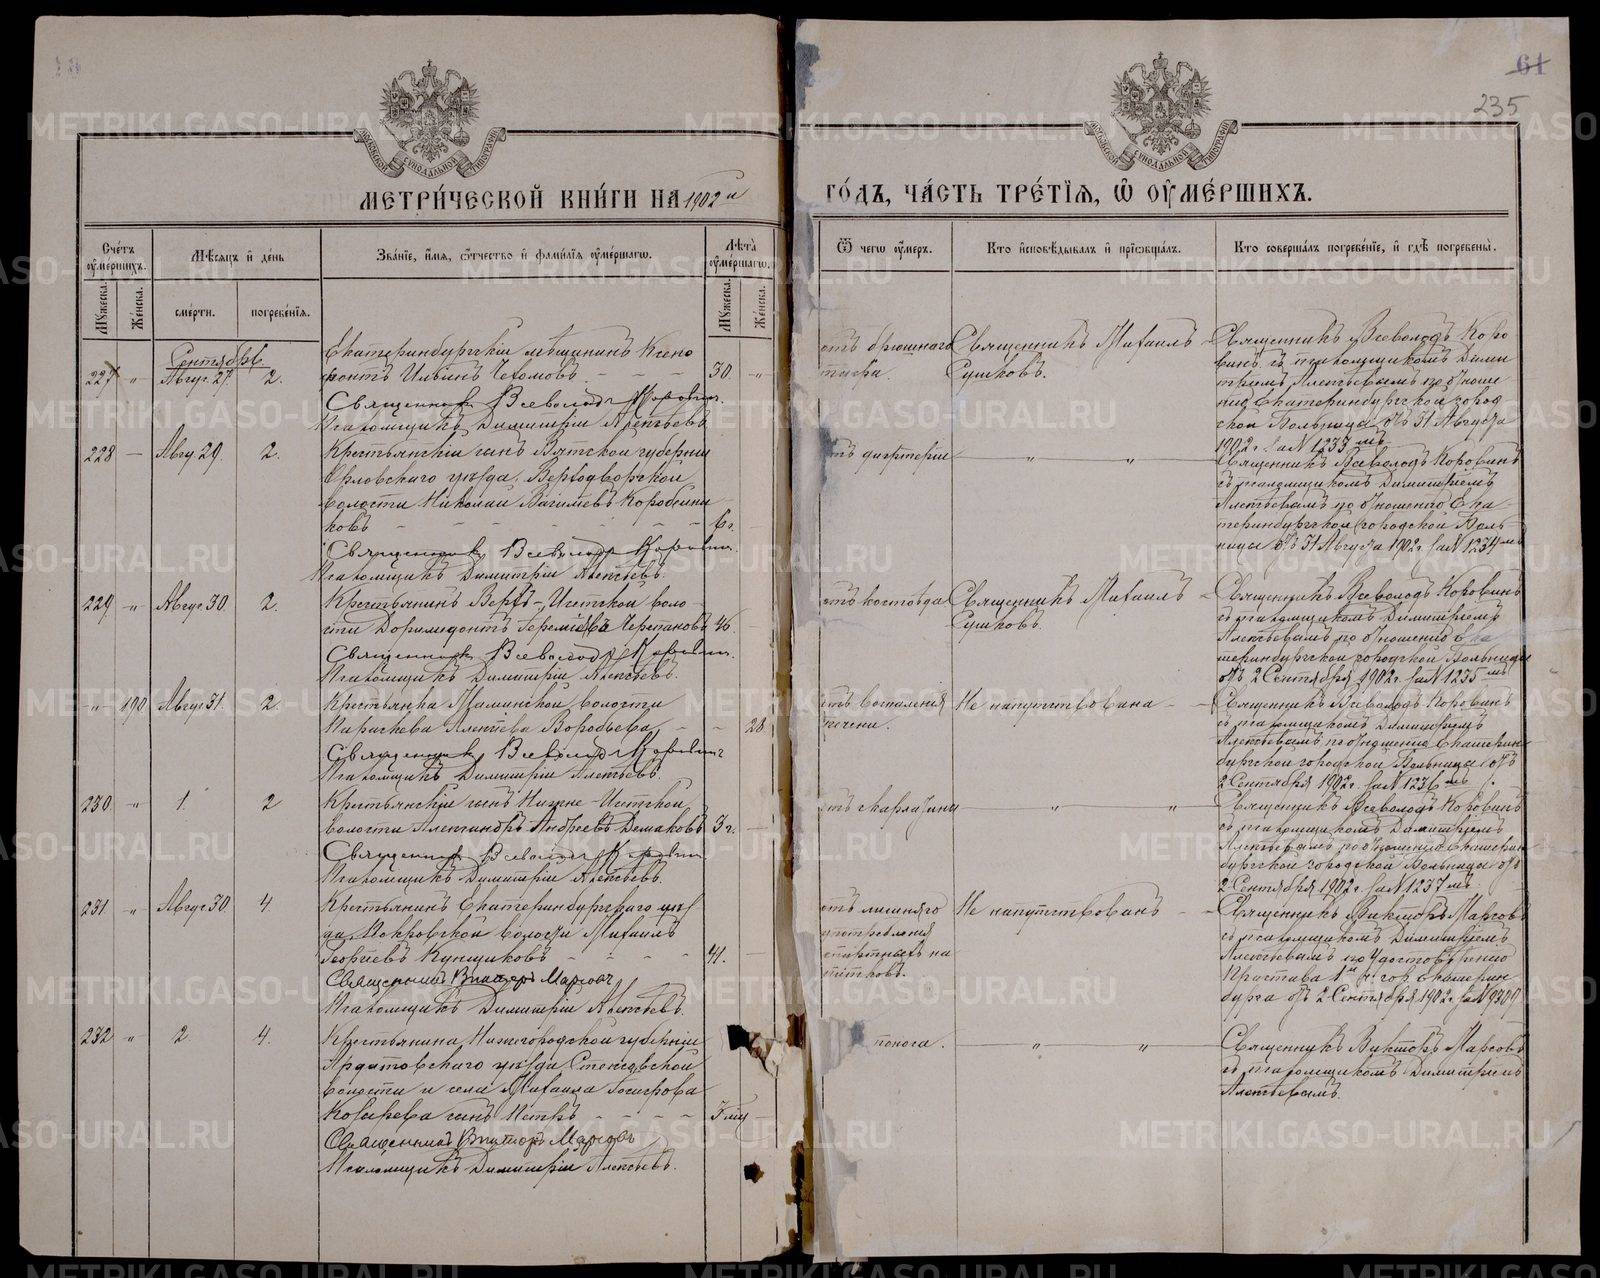 61
235
МОСКОВСКОЙ СѴНОДАЛЬНОЙ ТИПОГРАФІИ
МОСКОВСКОЙ СѴНОДАЛЬНОЙ ТИПОГРАФІИ
МЕТРИ́ЧЕСКОЙ КНИ́ГИ НА 1902 й
ГО́ДЪ, ЧА́СТЬ ТРЕ́ТІѦ, Ѡ ОУМЕ́РШИХЪ.
Счетъ оумершихъ.
Мужеска.
Женска.
Мѣсяцъ и день
смерти.
погребенія.
Званіе, имя, отчество и фамилія оумершагѡ.
Лѣта оумершагѡ.
Мужеска.
Женска.
Ѿ чегѡ оумеръ.
Кто исповѣдывалъ и пріобщалъ.
Кто совершалъ погребеніе, и гдѣ погребены.
Сентябрь.
227 " Авгус. 27. 2.
Екатеринбургскій мѣщанинъ Ксено
фонтъ Ильинъ - - - 30. "
Священникъ Всеволодъ Коровинъ.
Псаломщикъ Димитрій Алексѣевъ.
отъ брюшного
тифа
Священникъ Михаилъ
Сушковъ.
Священникъ Всеволодъ Коро
винъ съ псаломщикомъ Дими
тріемъ Алексѣевымъ по отноше
нію Екатеринбургской город
ской больницы отъ 31 Августа
1902 г. за № 1233 мъ
228 — Авгу 29. 2.
Крестьянскій сынъ Вятской губерніи
Орловскаго уѣзда, Верходворской
волости Николай
ковъ - - - - 6 г.
Священникъ Всеволодъ Коровинъ.
Псаломщикъ Димитрій Алексѣевъ.
отъ дифтеріи " "
Священникъ Всеволодъ Коровинъ
съ псаломщикомъ Димитріемъ
Алексѣевымъ по отношенію Ека
теринбургской городской боль
ницы отъ 31 Августа 1902 г. за № 1234 мъ
229 " Авгус 30. 2.
Крестьянинъ Верхъ-Исетской воло
сти Доримедонтъ Черепановъ 46.
Священникъ Всеволодъ Коровинъ.
Псаломщикъ Димитрій Алексѣевъ.
отъ костоѣда
Священникъ Михаилъ
Сушковъ.
Священникъ Всеволодъ Коровинъ
съ псаломщикомъ Димитріемъ
Алексѣевымъ по отношенію Ека
теринбургской городской больницы
отъ 2 Сентября 1902 г. за № 1235 мъ
" 190 Август 31. 2.
Крестьянка Таминской волости
Параскева Алексѣева Воробьева - - 28
Священникъ Всеволодъ Коровинъ
Псаломщикъ Димитрій Алексѣевъ.
отъ воспаленія
печени.
Не напутствована
Священникъ Всеволодъ Коровинъ
съ псаломщикомъ Димитріемъ
Алексѣевымъ по отношенію Екатерин
бургской городской больницы отъ
2 Сентября 1902 г. за № 1236 мъ
230 " 1. 2
Крестьянскій сынъ Нижне-Исетской
волости Александръ Андреевъ Демаковъ 3 г.
Священникъ Всеволодъ Коровинъ
Псаломщикъ Димитрій Алексѣевъ.
отъ скарлатины " "
Священникъ Всеволодъ Коровинъ
съ псаломщикомъ Димитріемъ
Алексѣевымъ по отношенію Екатерин
бургской городской больницы отъ
2 Сентября 1902 г. за № 1237 мъ
231 " Авгус 30. 4.
Крестьянинъ Екатеринбургскаго уѣз
да, Покровской волости Михаилъ
Георгіевъ Кунщиковъ - - - 41.
Священникъ Викторъ Марсовъ
Псаломщикъ Димитрій Алексѣевъ.
отъ лишняго
употребленія
спиртныхъ на
питковъ.
Не напутствованъ
Священникъ Викторъ Марсовъ
съ псаломщикомъ Димитріемъ
Алексѣевымъ по удостовѣренію
Пристава 1 й ч. гор. Екатерин
бурга отъ 2 Сентября 1902 г. за №
232 " 2. 4.
Крестьянина Нижегородской губерніи
Ардатовскаго уѣзда, Стексовской
волости и села Михаила
сынъ Петръ - - - - 3 мц
Священникъ Викторъ Марсовъ
Псаломщикъ Димитрій Алексѣевъ.
поноса. " "
Священникъ Викторъ Марсовъ
съ псаломщикомъ Димитріемъ
Алексѣевымъ.
METRIKI.GASO-URAL.RU